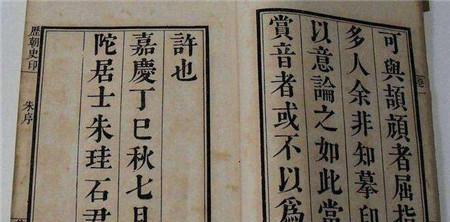 卷一
可與頡頏者屈指
多人余非知摹印
以意論之如此當
賞音者或不以爲
許也
嘉慶丁巳秋七月
陀居士朱珪石君
歷朝史印
朱序